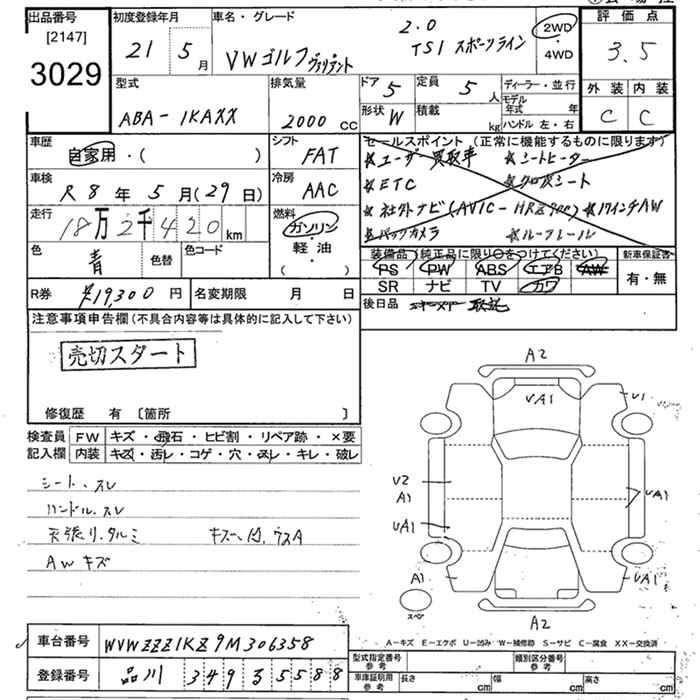 出品番号
[2147]
3029
初度登録年月
21 5 月
車名・グレード
VWゴルフヴァリアント
2.0
TSI スポーツライン
2WD
・
4WD
評価点
3.5
外装 内装
C C
型式
ABA-1KAXX
排気量
2000 CC
ドア 5
定員 5 人
形状 W
積載 kg
ディーラー・並行
モデル年式 年
ハンドル 左・右
車歴
自家用・( )
シフト
FAT
車検
R 8 年 5 月(29 日)
冷房
AAC
走行
18万2千420 km
燃料
ガソリン
軽・油
( )
色
青
色替
色コード
セールスポイント (正常に機能するものに限ります)
★ユーザー買取車 ★シートヒーター
★ETC
★社外ナビ(AVIC-HRZ900) ★17インチAW
★バックカメラ ★ルーフレール
装備品 (純正品に限り○をつけてください)
PS PW ABS エアB AW
SR ナビ TV カワ
新車保証書
有・無
後日品
R券 ¥19,300 円
名変期限 月 日
注意事項申告欄 (不具合内容等は具体的に記入して下さい)
売切スタート
修復歴 有 〔箇所 〕
検査員記入欄
FW キズ・飛石・ヒビ割・リペア跡・×要
内装 キズ・汚レ・コゲ・穴・スレ・キレ・破レ
シート.スレ
ハンドル.スレ
天張り.タルミ
AWキズ
A2
VA1
U1
U2
A1
UA1
UA1
A1
UA1
A2
スペア
A-キズ E-エクボ U-凹み W-補修跡 S-サビ C-腐食 XX-交換済
車台番号 WVWZZZ1KZ9M306358
登録番号 品川 349 る 5588
型式指定番号 参考
類別区分番号 参考
車庫証明用 参考
長さ cm
幅 cm
高さ cm